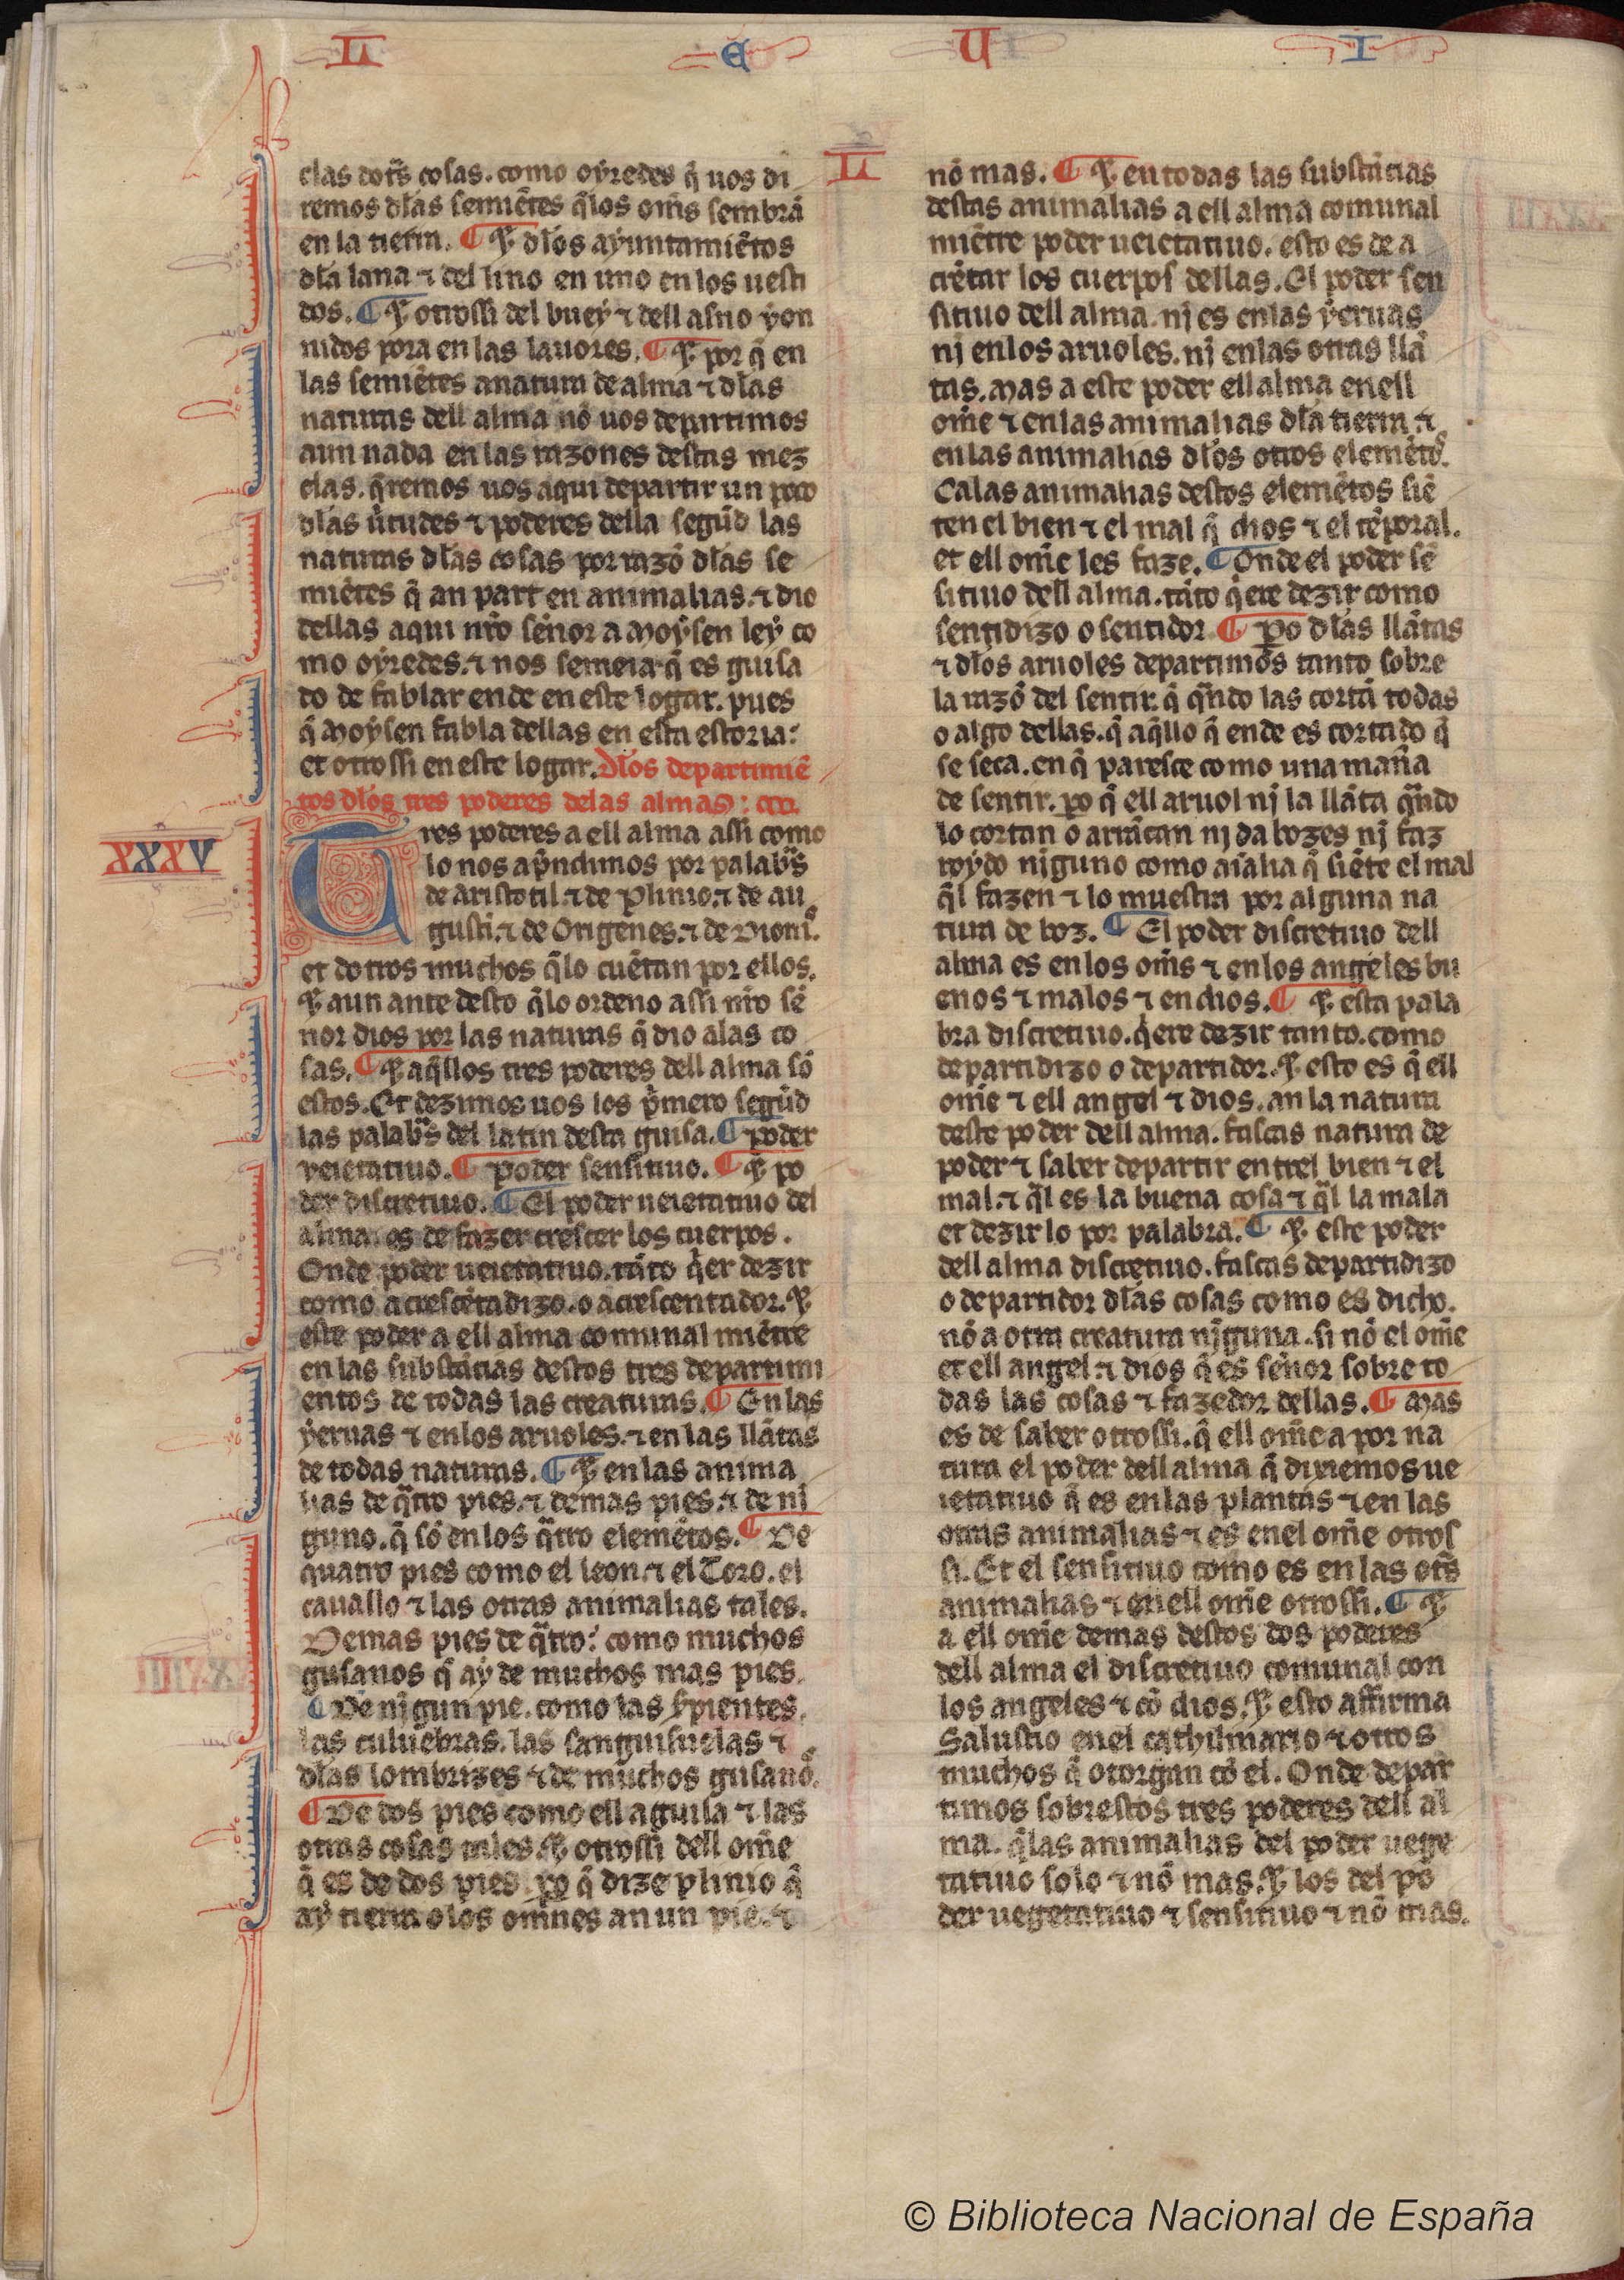 L E U I
clas dotrãs cosas. como oyredes q̃ uos di
remos dłas semiẽtes q̃ los om̃s sembrã
en la tierra. ¶ ⁊ dłos ayuntamiẽtos
dła lana ⁊ del lino en uno en los uesti
dos. ¶ ⁊ otrossi del buey ⁊ dell asno yon
nidos pora en las lauores. ¶ ⁊ por q̃ en
las semiẽtes a natura de alma ⁊ dłas
naturas dell alma nõ uos departimos
aun nada en las razones destas mez
clas. q̃remos uos aqui departir un poco
dłas ũtudes ⁊ poderes della segũd las
naturas dłas cosas por razõ dłas se
miẽtes q̃ an part en animalias. ⁊ dio
dellas aqui nr̃o sẽnor a Moysen ley co
mo oyredes. ⁊ nos semeia q̃ es guisa
do de fablar ende en este logar. pues
q̃ Moysen fabla dellas en esta estoria:
et otrossi en este logar. Dłos departimiẽ
tos dłos tres poderes delas almas:
XXXV
Tres poderes a ell alma assi como
lo nos ap̃ndimos por palab̃s
de Aristotil. ⁊ de Plinio. ⁊ de au
gusti. ⁊ de Origenes. ⁊ de Dioni⁹.
et dotros muchos q̃lo cuẽtan por ellos.
⁊ aun ante desto q̃lo ordeno assi nr̃o sẽ
nor dios por las naturas q̃ dio alas co
sas. ¶ ⁊ aq̃llos tres poderes dell alma sõ
estos. Et dezimos uos los p̃mero segũd
las palab̃s del latin desta guisa. ¶ poder
veietatiuo. ¶ poder sensitiuo. ¶ ⁊ po
der discretiuo. ¶ El poder ueietatiuo del
alma. es de fazer crescer los cuerpos.
Onde poder ueietatiuo. tãto q̃er dezir
como acrescẽtadizo. o acrescentador. ⁊
este poder a ell alma comunal miẽtre
en las substãcias destos tres departimi
entos de todas las creaturas. ¶ En las
yeruas ⁊ en los aruoles. ⁊ en las llãtas
de todas naturas. ¶ ⁊ en las anima
lias de q̃tro pies. ⁊ demas pies. ⁊ de nĩ
guno. q̃ sõ en los q̃tro elemẽtos. ¶ De
quatro pies como el leon. ⁊ el Toro. el
cauallo ⁊ las otras animalias tales.
Demas pies de q̃tro: como muchos
gusanos q̃ ay de muchos mas pies.
¶ De nĩgun pie. como las s̃pientes.
las culuebras. las sanguisuelas ⁊
dłas lombrizes ⁊ de muchos gusano⁹.
¶ De dos pies como ell aguila ⁊ las
otras cosas tales. ⁊ otrossi dell om̃e
q̃ es de dos pies. po q̃ dize plinio q̃
ay tierra o los omñes an un pie. ⁊
nõ mas. ¶ ⁊ en todas las substãcias
destas animalias a ell alma comunal
miẽtre poder ueietatiuo. esto es de a
crẽtar los cuerpos dellas. El poder sen
sitiuo dell alma. nj es enlas yeruas
nj enlos aruoles. nj enlas otras llã
tas. Mas a este poder ell alma en ell
om̃e ⁊ enlas animalias dła tierra ⁊
enlas animalias dłos otros elemẽto⁹.
Ca las animalias destos elemẽtos siẽ
ten el bien ⁊ el mal q̃ dios ⁊ el tẽporal.
et ell om̃e les faze. ¶ Onde el poder sẽ
sitiuo dell alma. tãto q̃ere dezir como
sentidizo o sentidor ¶ Po dłas llãtas
⁊ dłos aruoles departimos tanto sobre
la razõ del sentir. q̃ q̃ndo las cortã todas
o algo dellas. q̃ aq̃llo q̃ ende es cortado q̃
se seca. en q̃ paresce como una mañа
de sentir. po q̃ ell aruol nj la llãta q̃ndo
lo cortan o arrãcan nj da bozes nj faz
roydo nj̃guno como aĩalia q̃ siẽte el mal
q̃l fazen ⁊ lo muestra por alguna na
tura de boz. ¶ El poder discretiuo dell
alma es en los om̃s ⁊ en los angeles bu
enos ⁊ malos ⁊ en dios. ¶ ⁊ esta pala
bra discretiuo. q̃ere dezir tanto. como
departidizo o departidor. ⁊ esto es q̃ ell
om̃e ⁊ ell angel ⁊ dios. an la natura
deste poder dell alma. fascas natura de
poder ⁊ saber departir entrel bien ⁊ el
mal. ⁊ q̃l es la buena cosa ⁊ q̃l la mala
et dezir lo por palabra. ¶ ⁊ este poder
dell alma discretiuo. fascas departidizo
o departidor dłas cosas como es dicho.
nõ a otra creatura nj̃guna. si nõ el om̃e
et ell angel. ⁊ dios q̃ es sẽnor sobre to
das las cosas ⁊ fazedor dellas. ¶ Mas
es de saber otrossi. q̃ ell om̃e a por na
tura el poder dell alma q̃ dixiemos ue
ietatiuo q̃ es en las plantas ⁊ en las
otras animalias ⁊ es enel om̃e otros
si. Et el sensitiuo como es en las otr̃s
animalias ⁊ en ell om̃e otrossi. ¶ ⁊
a ell om̃e demas destos dos poderes
dell alma el discretiuo comunal con
los angeles ⁊ cõ dios. ⁊ esto affirma
Salustio enel cathilinario ⁊ otros
muchos q̃ otorgan cõ el. Onde depar
timos sobrestos tres poderes dell al
ma. q̃ las animalias del poder uege
tatiuo solo ⁊ nõ mas. ⁊ los del po
der uegetatiuo ⁊ sensitiuo ⁊ nõ mas.
© Biblioteca Nacional de España